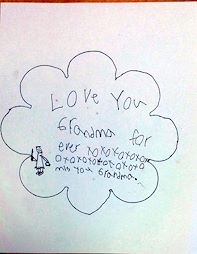 LOve You
Grandma for
ever xoxoxoxoxo
oxoxoxoxoxoxo
mis you Grandma.